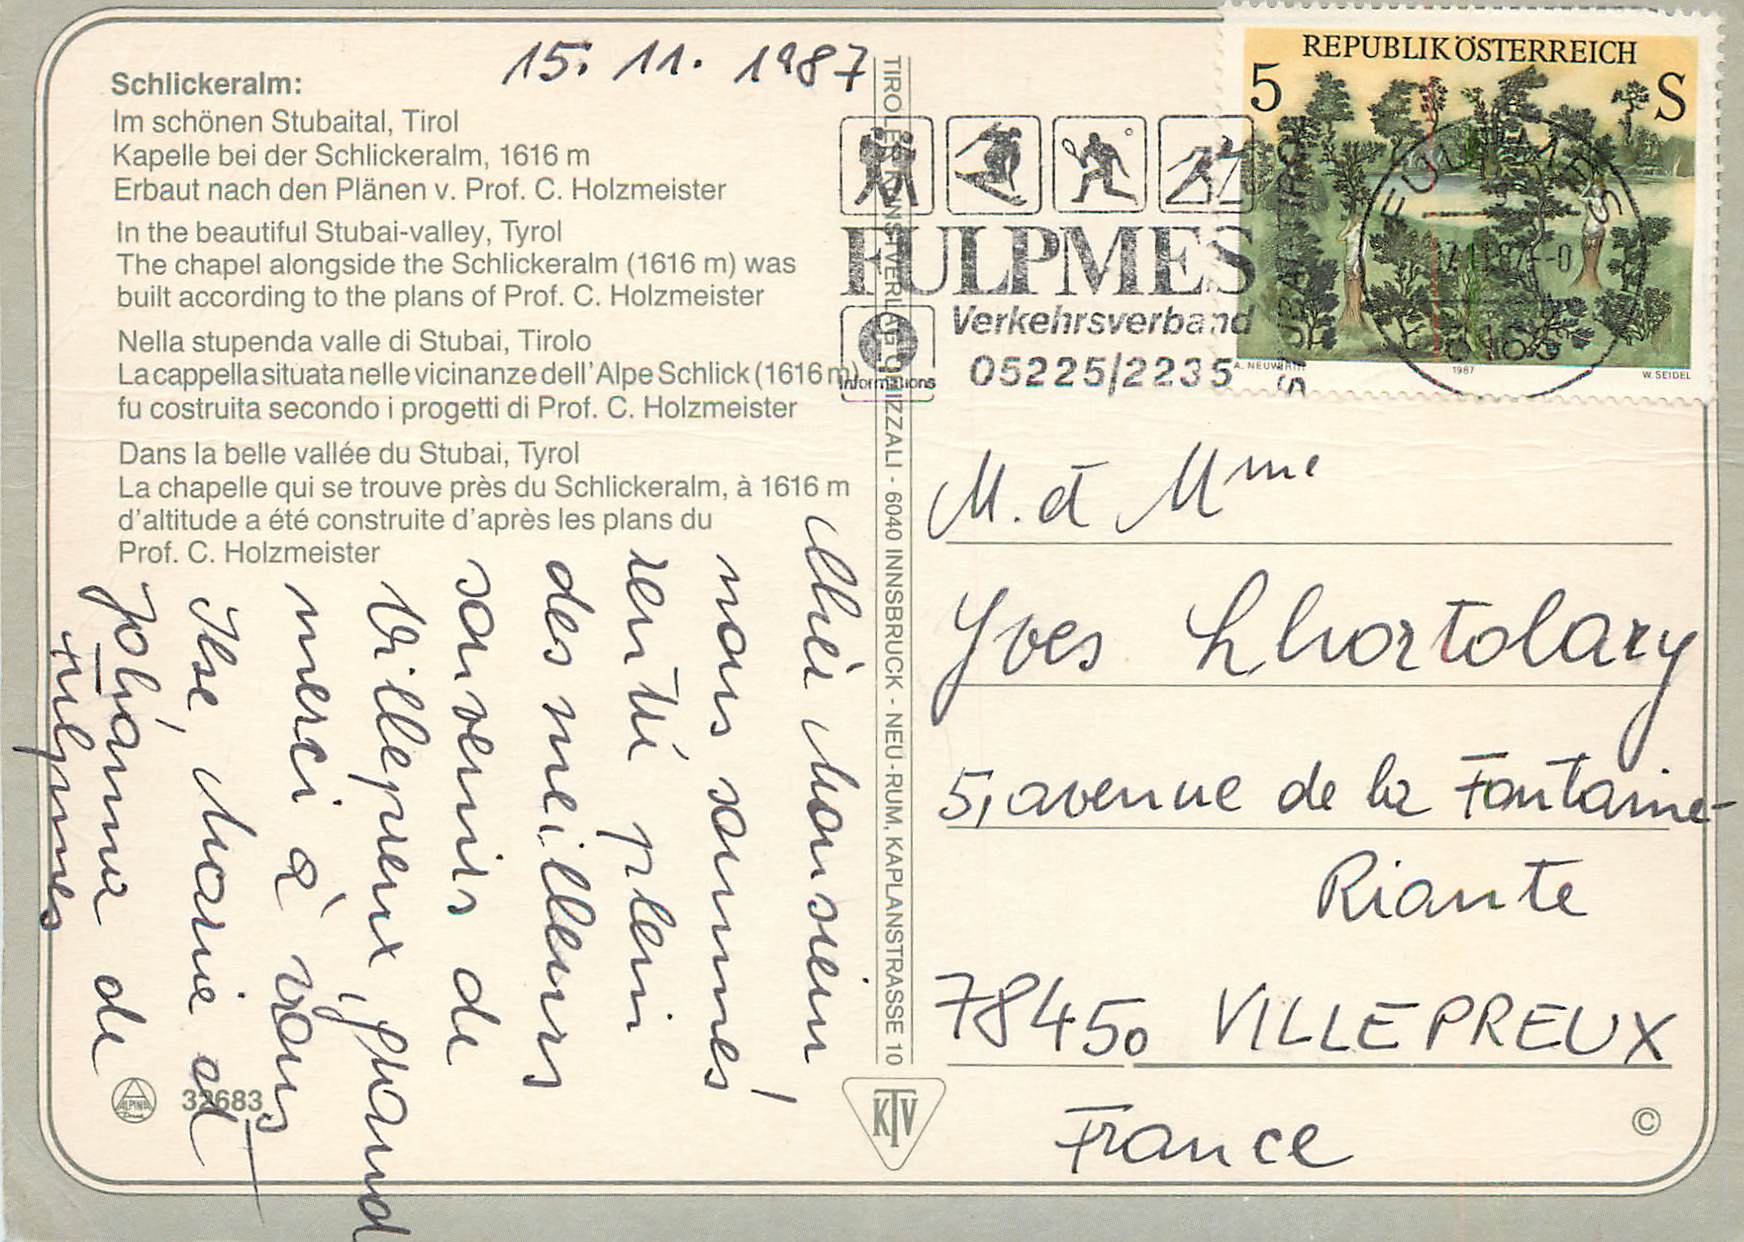 15. 11. 1987
Schlickeralm:
Im schönen Stubaital, Tirol
Kapelle bei der Schlickeralm, 1616 m
Erbaut nach den Plänen v. Prof. C. Holzmeister
In the beautiful Stubai-valley, Tyrol
The chapel alongside the Schlickeralm (1616 m) was
built according to the plans of Prof. C. Holzmeister
Nella stupenda valle di Stubai, Tirolo
La cappella situata nelle vicinanze dell'Alpe Schlick (1616 m)
fu costruita secondo i progetti di Prof. C. Holzmeister
Dans la belle vallée du Stubai, Tyrol
La chapelle qui se trouve près du Schlickeralm, à 1616 m
d'altitude a été construite d'après les plans du
Prof. C. Holzmeister
Chèr Monsieur
nous sommes
rentré plein
des meilleurs
souvenirs de
Villepreux, grand
merci à vous
Ilse, Marie et
Johanna de
Fulpmes
ALPINA
32683
TIROLER KUNSTVERLAG CHIZZALI - 6040 INNSBRUCK - NEU-RUM, KAPLANSTRASSE 10
KTV
REPUBLIK ÖSTERREICH
5 S
A. NEUWIRTH 1987 W. SEIDEL
FULPMES
Verkehrsverband
05225/2235
Informations
6166
M. et Mme
Yves Lhortolary
5, avenue de la Fontaine-
Riante
78450 VILLEPREUX
France
©